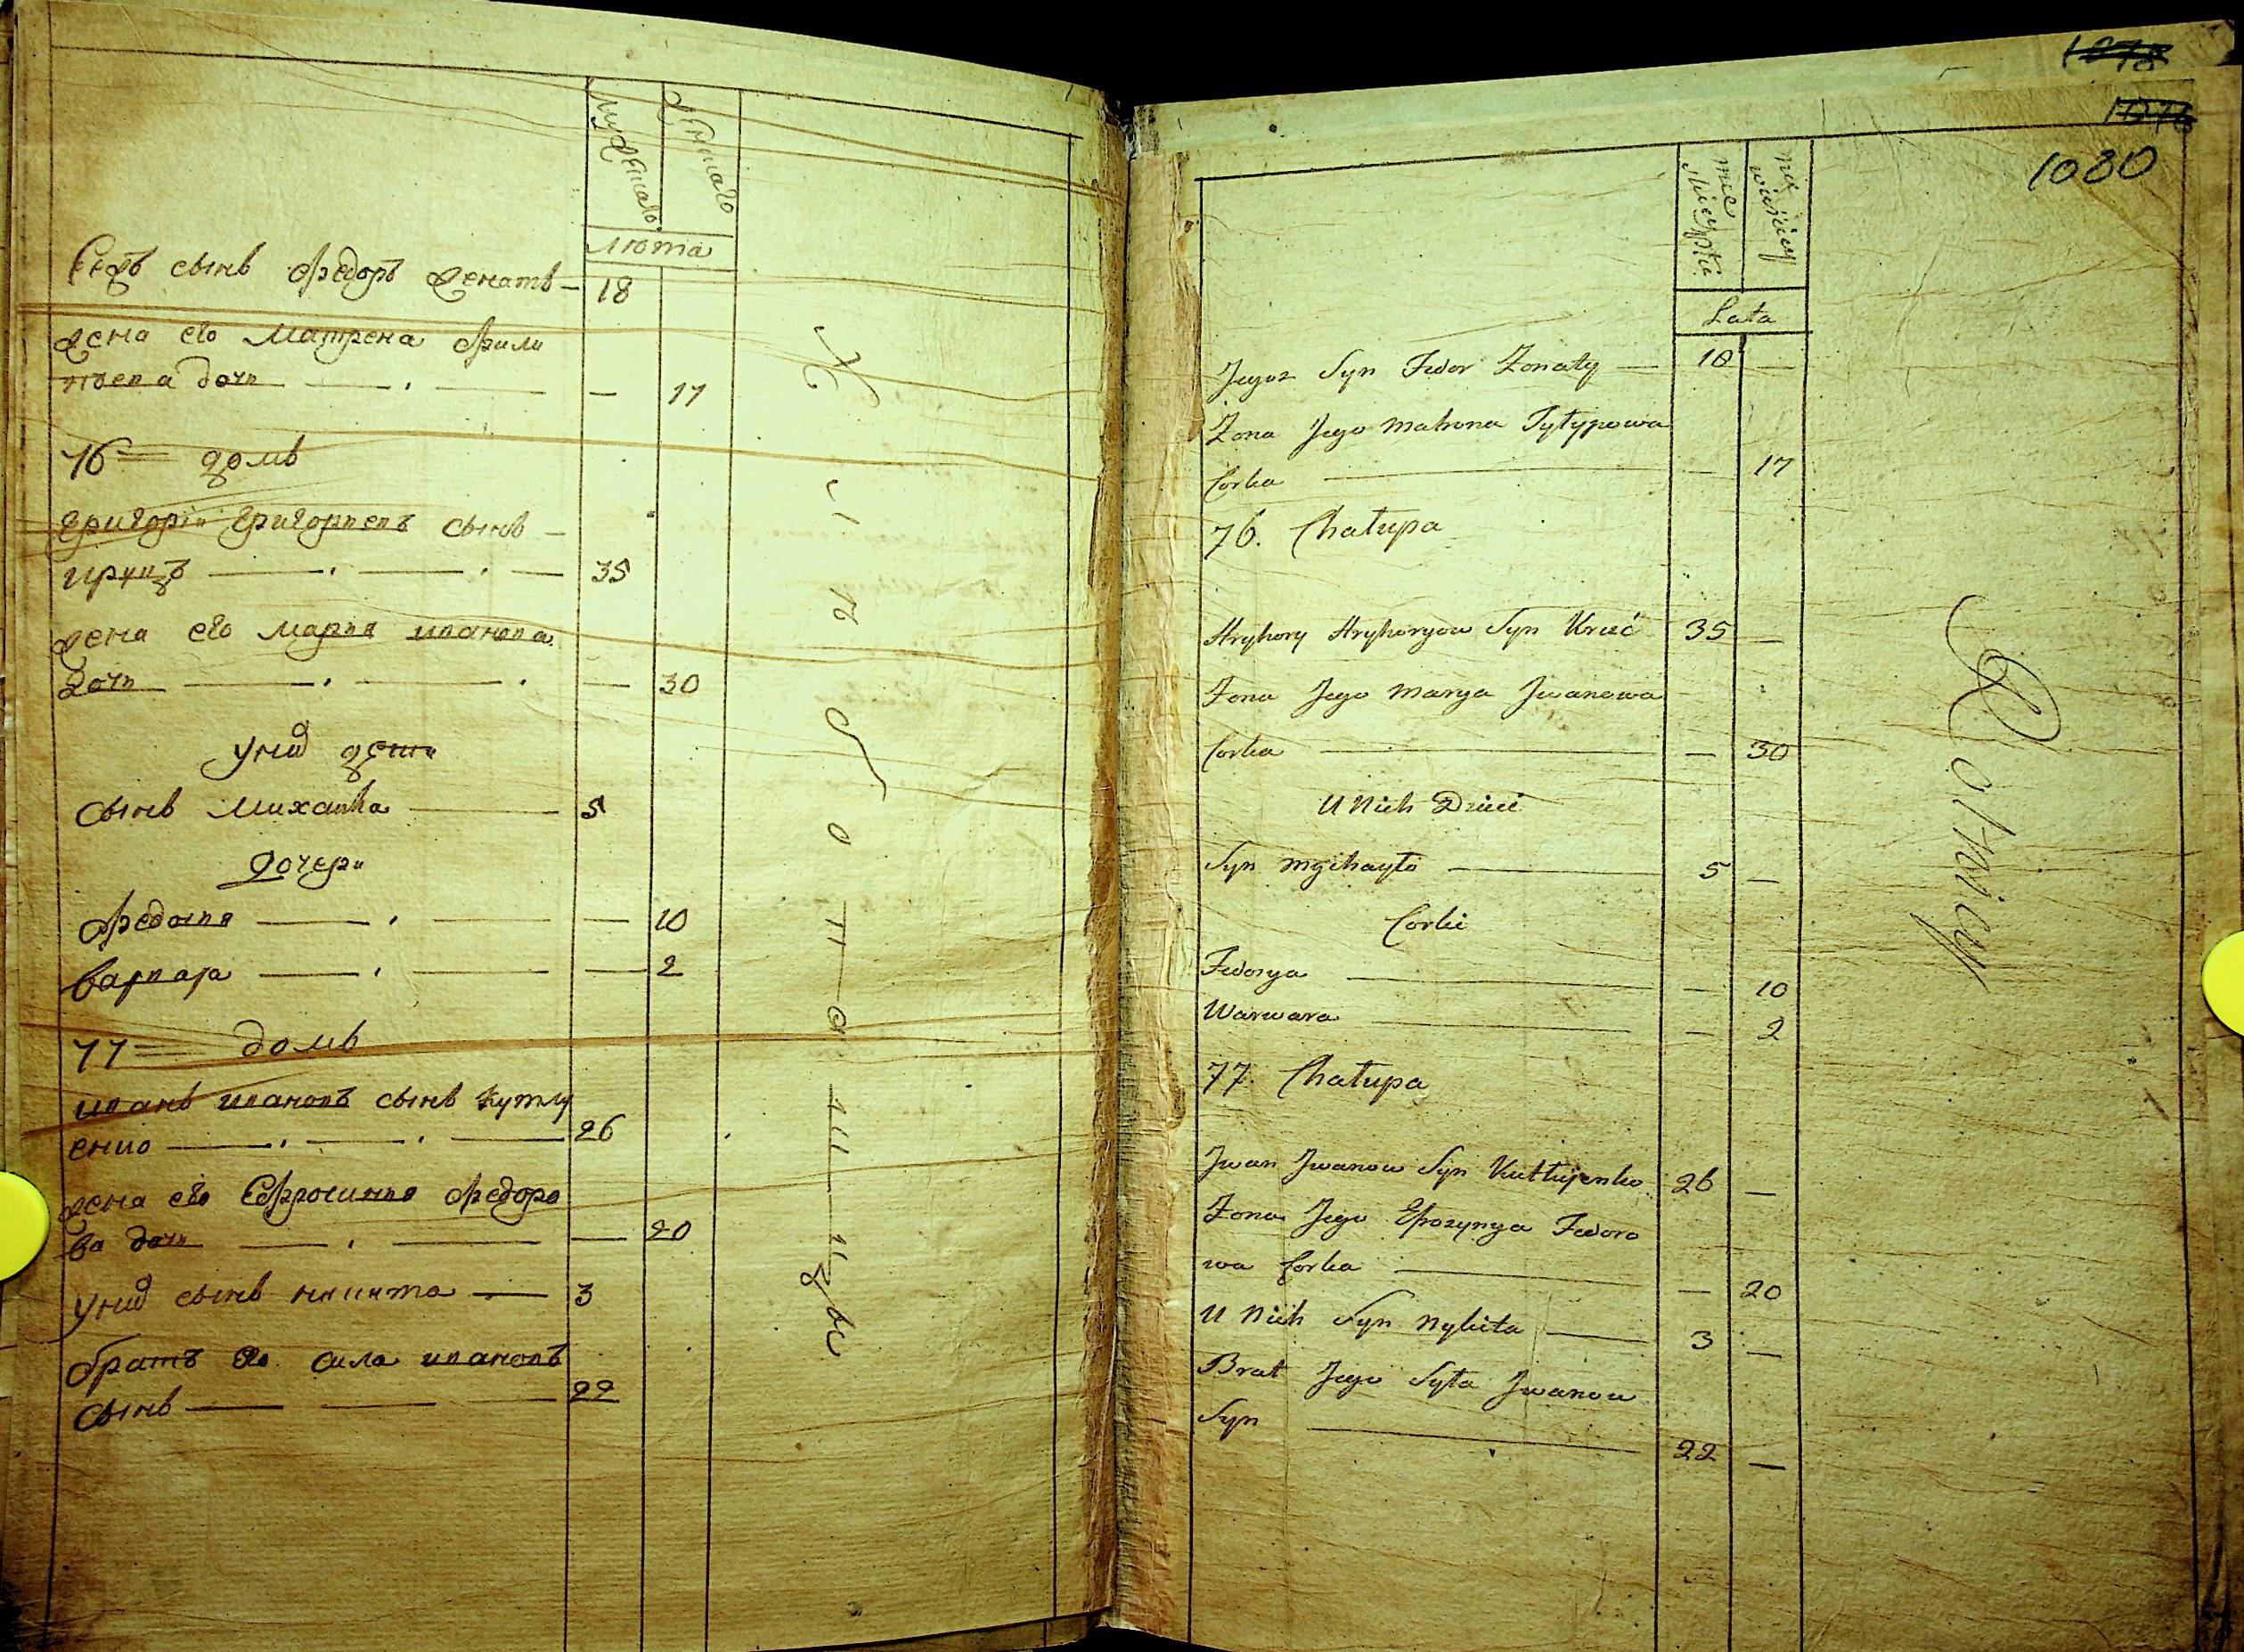 мужеска
женска
люта
Сегожъ сынъ Федоръ женатъ — 18
жена его Матрена Фили
пова дочь — — 17
76 домъ
Григорій Григорьевъ сынъ —
круць — 35
жена его Марья иванова
дочь — — 30
У них дети
сынъ Михаила — 5
дочери
Федосия — — 10
варвара — — 2
77 домъ
иванъ ивановъ сынъ кутлу
енко — 26
жена его Еффросиния Федоро
ва дочь — — 20
У них сынъ никита — 3
братъ его сила ивановъ
сынъ — 22
Хлѣбопашцы
1080
męska
żeńska
Lata
Jegoż Syn Fedor Żonaty — 18 —
Żona Jego Matrona Fylypowa
Corka — — 17
76. Chałupa
Hryhory Hryhoryow Syn Kruć 35 —
Żona Jego Marya Jwanowa
Corka — — 30
U Nich Dzieci
Syn Mychayło — 5 —
Corki
Fedosya — — 10
Warwara — — 2
77. Chałupa
Jwan Jwanow Syn Kutłujenko 26 —
Żona Jego Efrozynya Fedoro
wa Corka — — 20
U Nich Syn Nykita — 3 —
Brat Jego Syła Jwanow
Syn — 22 —
Rolnicy